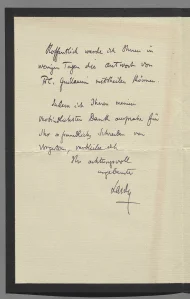 Hoffentlich werde ich Ihnen in
wenigen Tagen die Antwort von
Indem ich Ihnen meinen
verbindlichsten Dank ausspreche für
Ihr freundliches Schreiben von
vorgestern, verbleibe ich
Ihr achtungsvoll
ergebenster